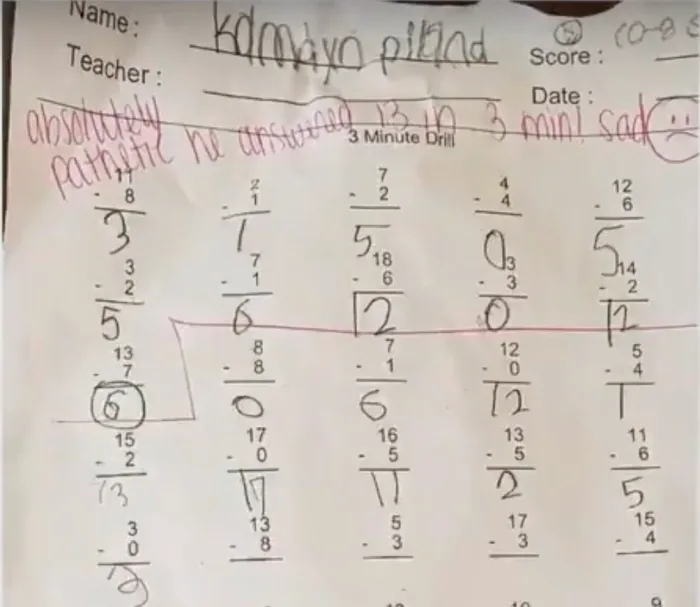 Name: Kamayn pilind Score: (0-8
Teacher:
Date:
absolutely
pathetic he answered 13 in 3 min! sad
3 Minute Drill
11 2 7 4 12
- 8 - 1 - 2 - 4 - 6
3 1 5 0 5
3 7 18 3 14
- 2 - 1 - 6 - 3 - 2
5 6 12 0 12
13 8 7 12 5
- 7 - 8 - 1 - 0 - 4
6 0 6 12 1
15 17 16 13 11
- 2 - 0 - 5 - 5 - 6
13 17 11 2 5
3 13 5 17 15
- 0 - 8 - 3 - 3 - 4